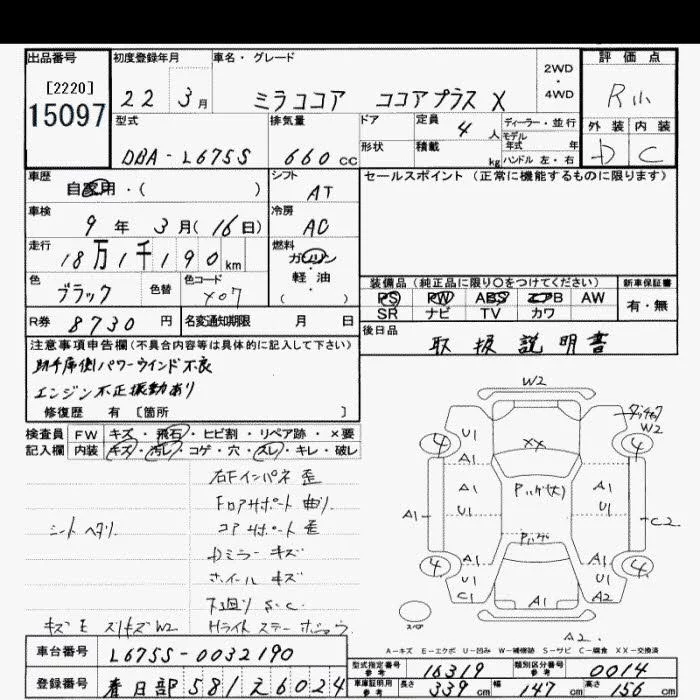 出品番号
[2220]
15097
初度登録年月
22 3月
車名・グレード
ミラココア ココアプラス X
2WD
・
4WD
評価点
R小
外装 内装
D C
型式
DBA-L675S
排気量
660 CC
ドア
形状
定員
4人
積載
kg
ディーラー・並行
モデル
年式 年
ハンドル 左・右
車歴
自家用・( )
シフト
AT
セールスポイント(正常に機能するものに限ります)
車検
9年 3月(16日)
冷房
AC
走行
18万1千190km
燃料
ガソリン
・
軽・油
( )
色
ブラック
色替
色コード
X07
装備品(純正品に限り〇をつけてください)
新車保証書
PS PW ABS エアB AW
SR ナビ TV カワ
有・無
R券
8730円
名変通知期限 月 日
後日品
取扱説明書
注意事項申告欄(不具合内容等は具体的に記入して下さい)
助手席側パワーウインド不良
エンジン不正振動あり
修復歴 有 〔箇所 〕
検査員
記入欄
FW キズ・飛石・ヒビ割・リペア跡・×要
内装 キズ・汚レ・コゲ・穴・スレ・キレ・破レ
右Fインパネ歪
Fロアサポート曲り
コアサポート歪
シートヘタリ
Dミラーキズ
ホイールキズ
下廻りS.C
キズモ スリキズW2
Hライトステー
W2
W2
4 U1 XX 4
A1
A1 A1
U1 U1
A1 C2
A1 A1
4 U1 U1 4
C1 A1 A2
スペア
A2
A-キズ E-エクボ U-凹み W-補修跡 S-サビ C-腐食 XX-交換済
車台番号
L675S-0032190
型式指定番号
参考
16319
類別区分番号
参考
0014
登録番号
春日部581え6024
車庫証明用
参考
長さ 339cm 幅 147cm 高さ 156cm